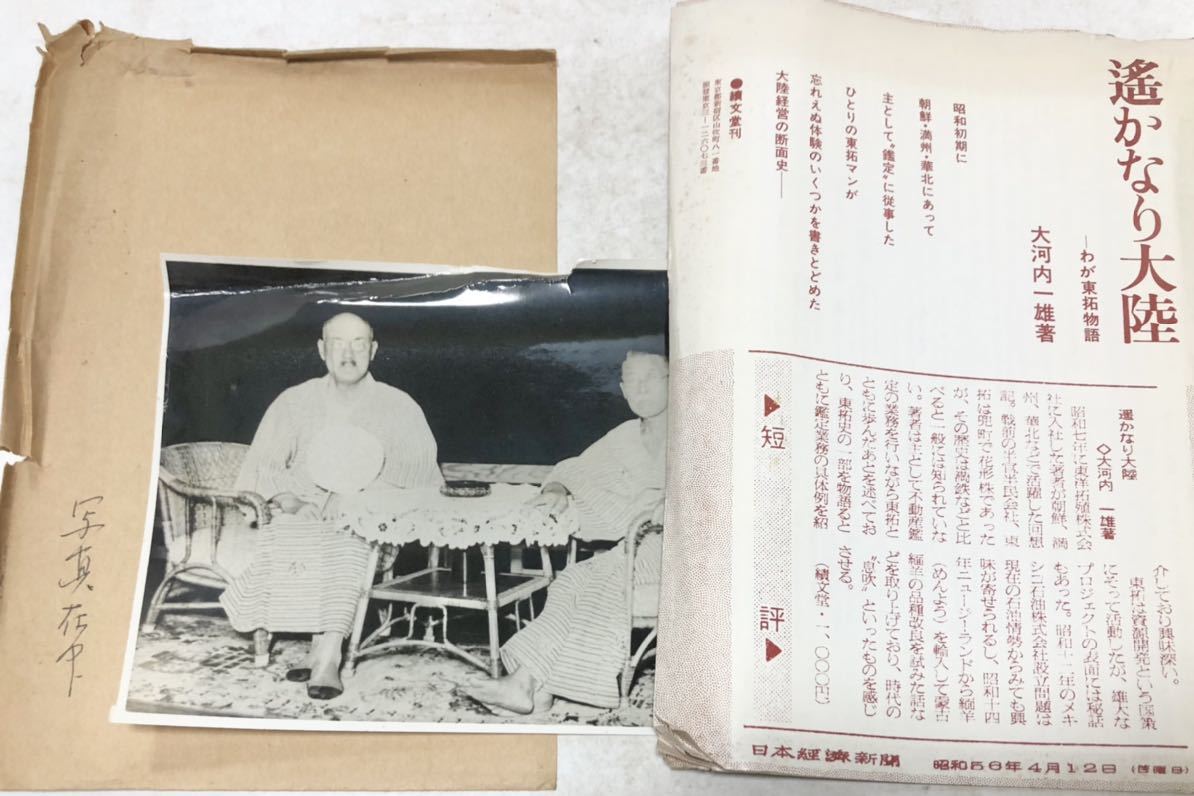 写真在中
遙かなり大陸
―わが東拓物語
大河内一雄著
昭和初期に
朝鮮・満州・華北にあって
主として“鑑定”に従事した
ひとりの東拓マンが
忘れえぬ体験のいくつかを書きとどめた
大陸経営の断面史――
●績文堂刊
東京都新宿区山吹町八一番地
▶短評▶
遥かなり大陸
◇大河内 一雄著
昭和七年に東洋拓殖株式会
社に入社した著者が朝鮮、満
州、華北などで活躍した回想
記。戦前の半官半民会社、東
拓は兜町で花形株であった
が、その歴史は満鉄などと比
べると一般には知られていな
い。著者は主として不動産鑑
定の業務を行いながら東拓と
ともに歩んだあとを述べてお
り、東拓史の一部を物語ると
ともに鑑定業務の具体例を紹
介しており興味深い。
東拓は資源開発という国策
にそって活動したが、雄大な
プロジェクトの裏面には秘話
もあった。昭和十二年のメキ
シコ石油株式会社設立問題は
現在の石油情勢からみても興
味が寄せられるし、昭和十四
年ニュージーランドから緬羊
（めんよう）を輸入して蒙古
緬羊の品種改良を試みた話な
どを取り上げており、時代の
“息吹”といったものを感じ
させる。
（績文堂・一、〇〇〇円）
日本経済新聞 昭和56年4月12日（日曜日）